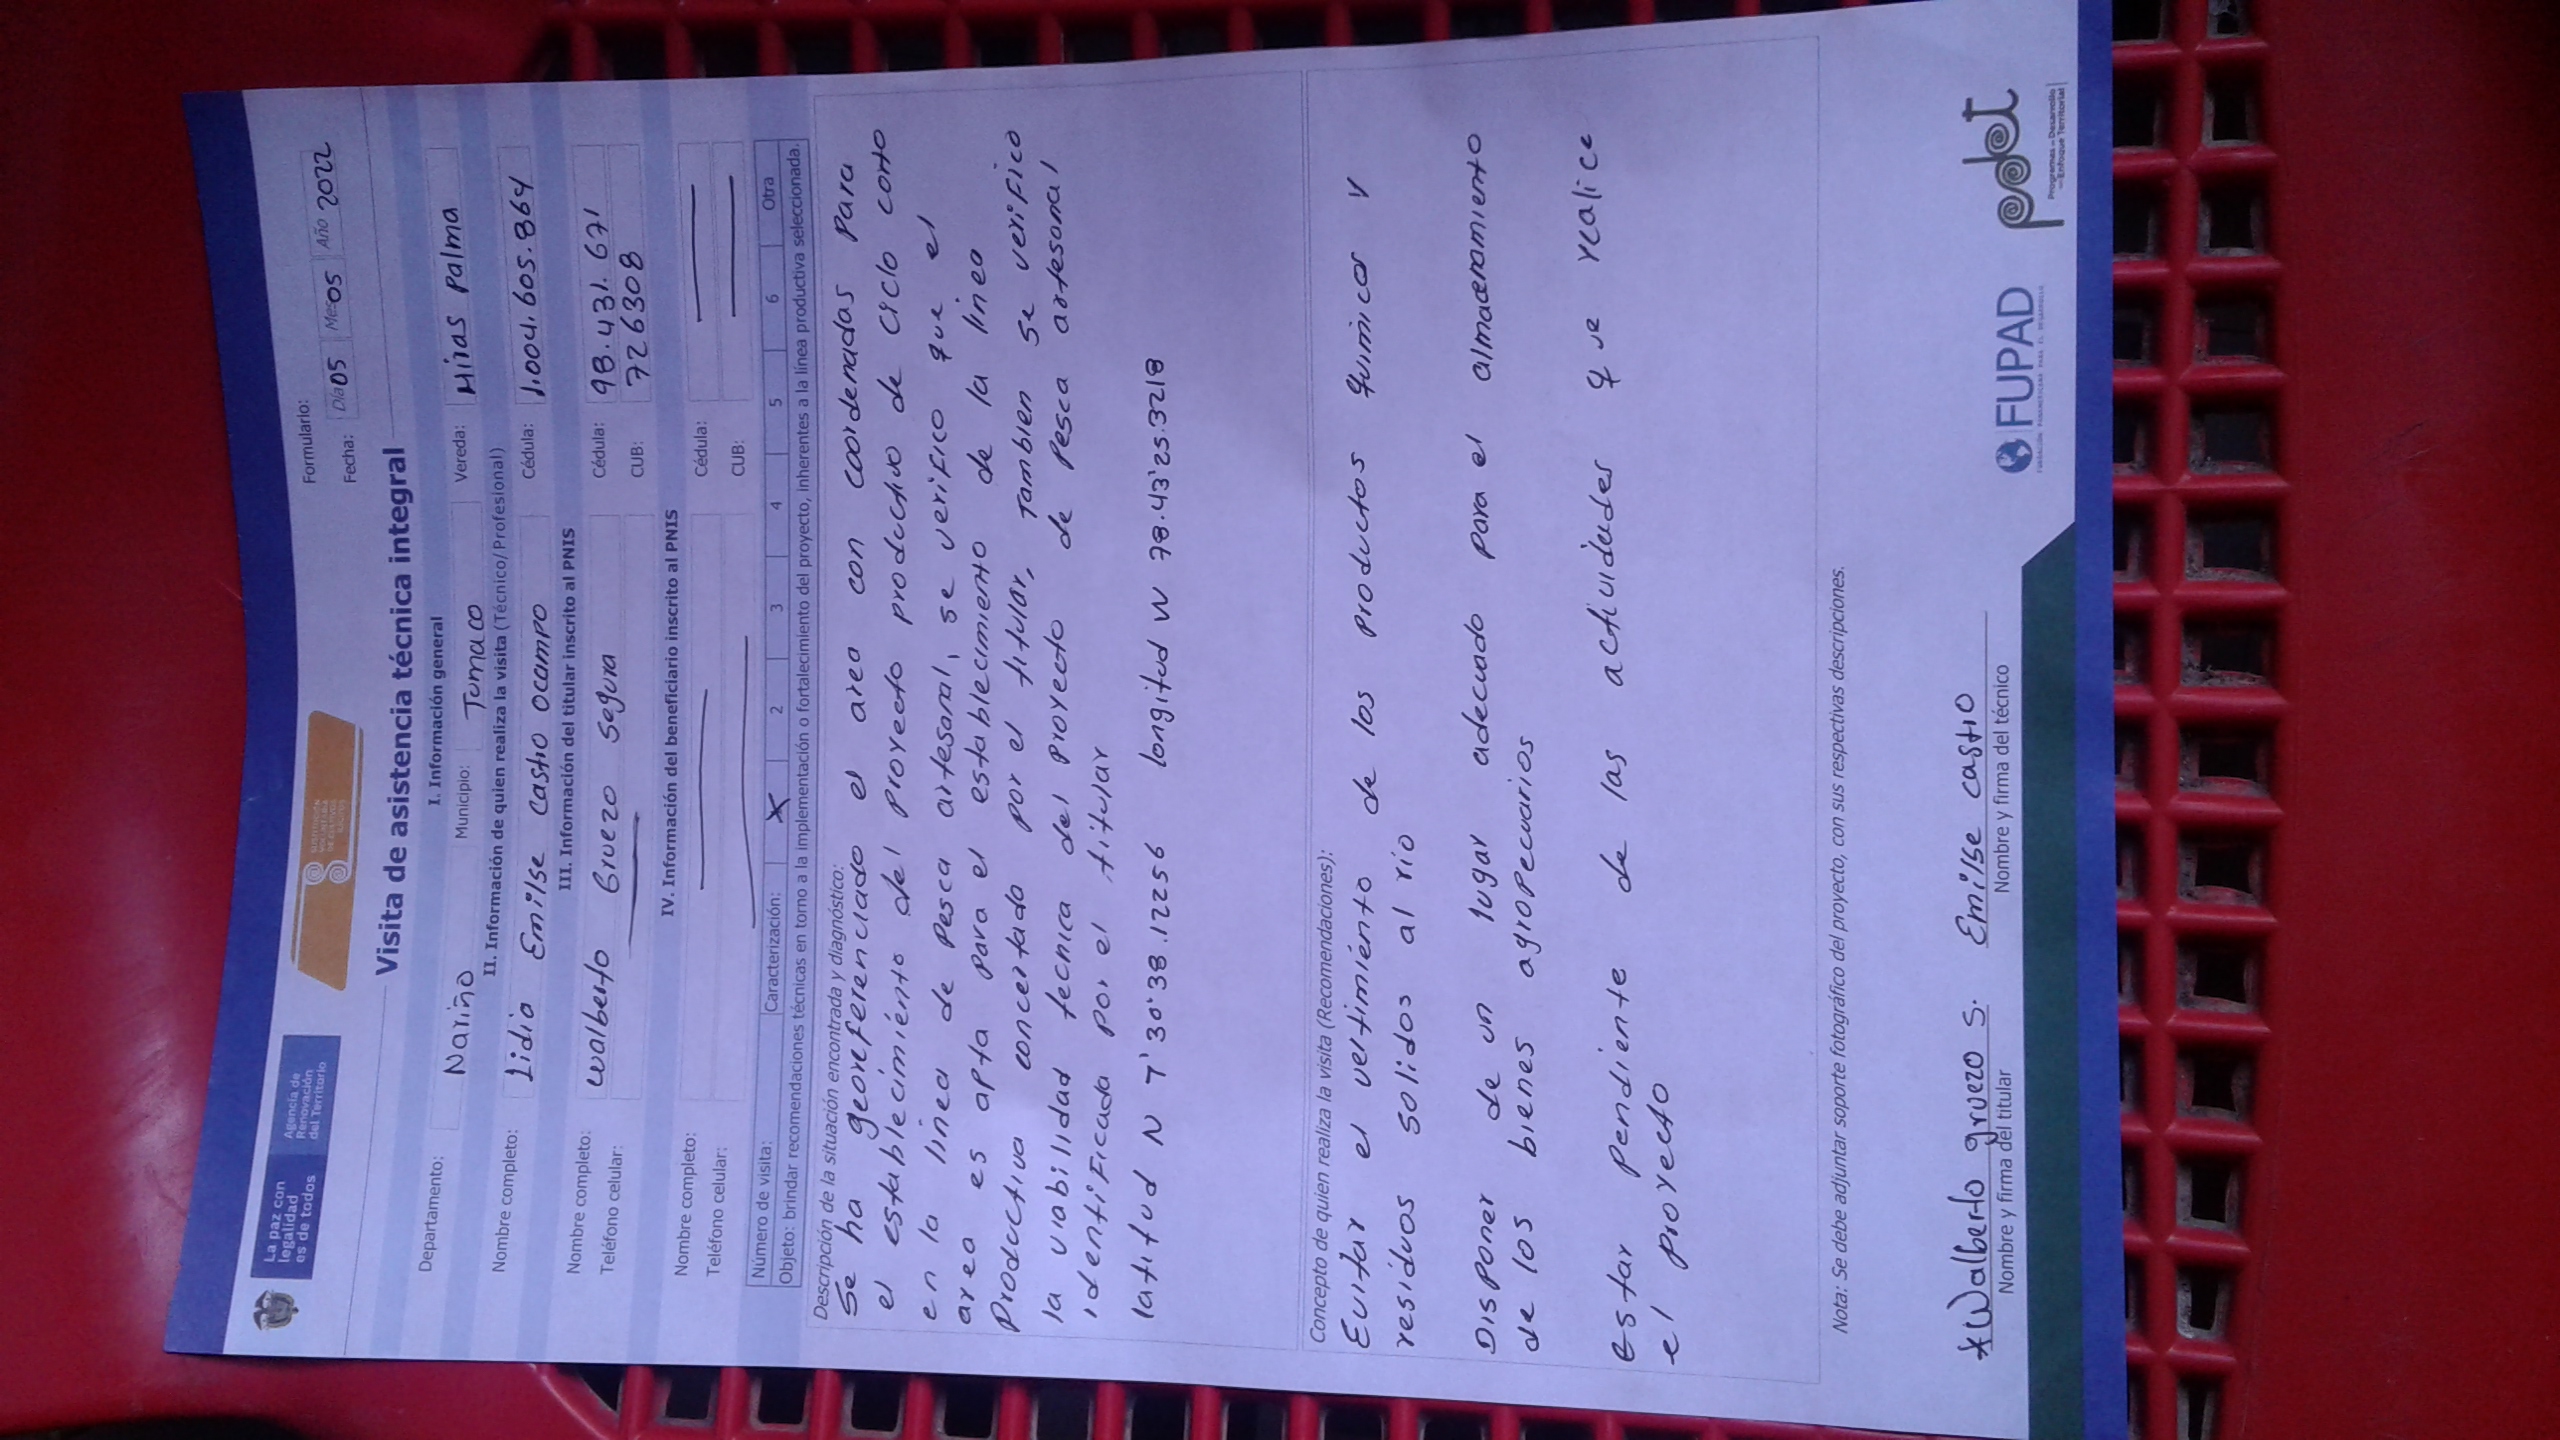 La paz con
legalidad
es de todos
Agencia de
Renovación
del Territorio
SUSTITUCIÓN
VOLUNTARIA
DE CULTIVOS
ILÍCITOS
Formulario:
Fecha: Día 05 Mes 05 Año 2022
Visita de asistencia técnica integral
I. Información general
Departamento: Nariño Municipio: Tumaco Vereda: Miras Palma
II. Información de quien realiza la visita (Técnico/Profesional)
Nombre completo: Lidia Emilse Castro Ocampo Cédula: 1.004.605.864
III. Información del titular inscrito al PNIS
Nombre completo: Walberto Gruezo Segura Cédula: 98.431.671
Teléfono celular: CUB: 726308
IV. Información del beneficiario inscrito al PNIS
Nombre completo: Cédula:
Teléfono celular: CUB:
Número de visita: Caracterización: X 2 3 4 5 6 Otra
Objeto: brindar recomendaciones técnicas en torno a la implementación o fortalecimiento del proyecto, inherentes a la línea productiva seleccionada.
Descripción de la situación encontrada y diagnóstico:
Se ha georeferenciado el area con coordenadas para
el establecimiento del proyecto productivo de ciclo corto
en la linea de pesca artesanal, se verifico que el
area es apta para el establecimiento de la linea
Productiva concertado por el titular, Tambien se verifico
la viabilidad tecnica del proyecto de pesca artesanal
identificada por el titular
latitud N 1°30'38.12256 longitud W 78.43'25.3218
Concepto de quien realiza la visita (Recomendaciones):
Evitar el vertimiento de los productos quimicos y
residuos solidos al rio
Disponer de un lugar adecuado para el almacenamiento
de los bienes agropecuarios
estar pendiente de las actividades que realice
el proyecto
Nota: Se debe adjuntar soporte fotográfico del proyecto, con sus respectivas descripciones.
*Walberto gruezo S. Emilse castro
Nombre y firma del titular Nombre y firma del técnico
FUPAD
FUNDACIÓN PANAMERICANA PARA EL DESARROLLO
pdet
Programas de Desarrollo
con Enfoque Territorial